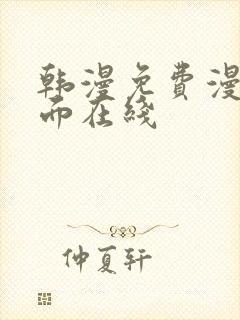 韩漫免费漫
而在线
仲夏轩